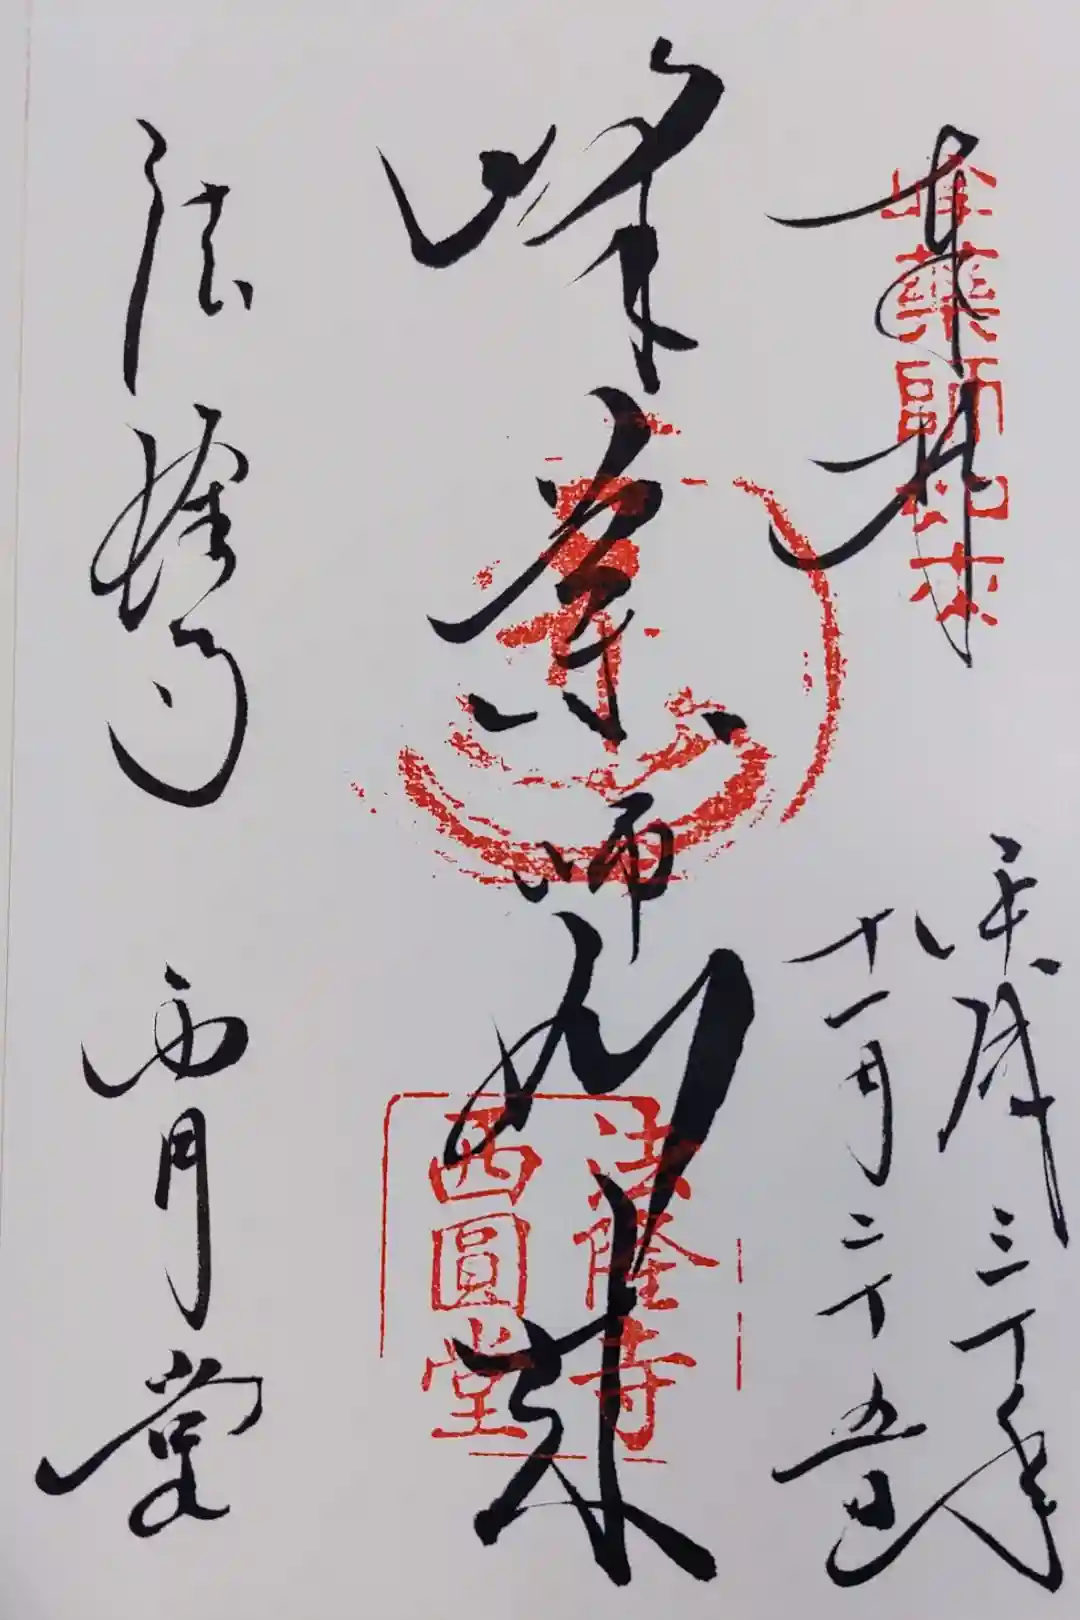 奉拝
平成三十年
十一月二十五日
峰薬師如来
法隆寺 西円堂
峰薬師如来
法隆寺
西圓堂